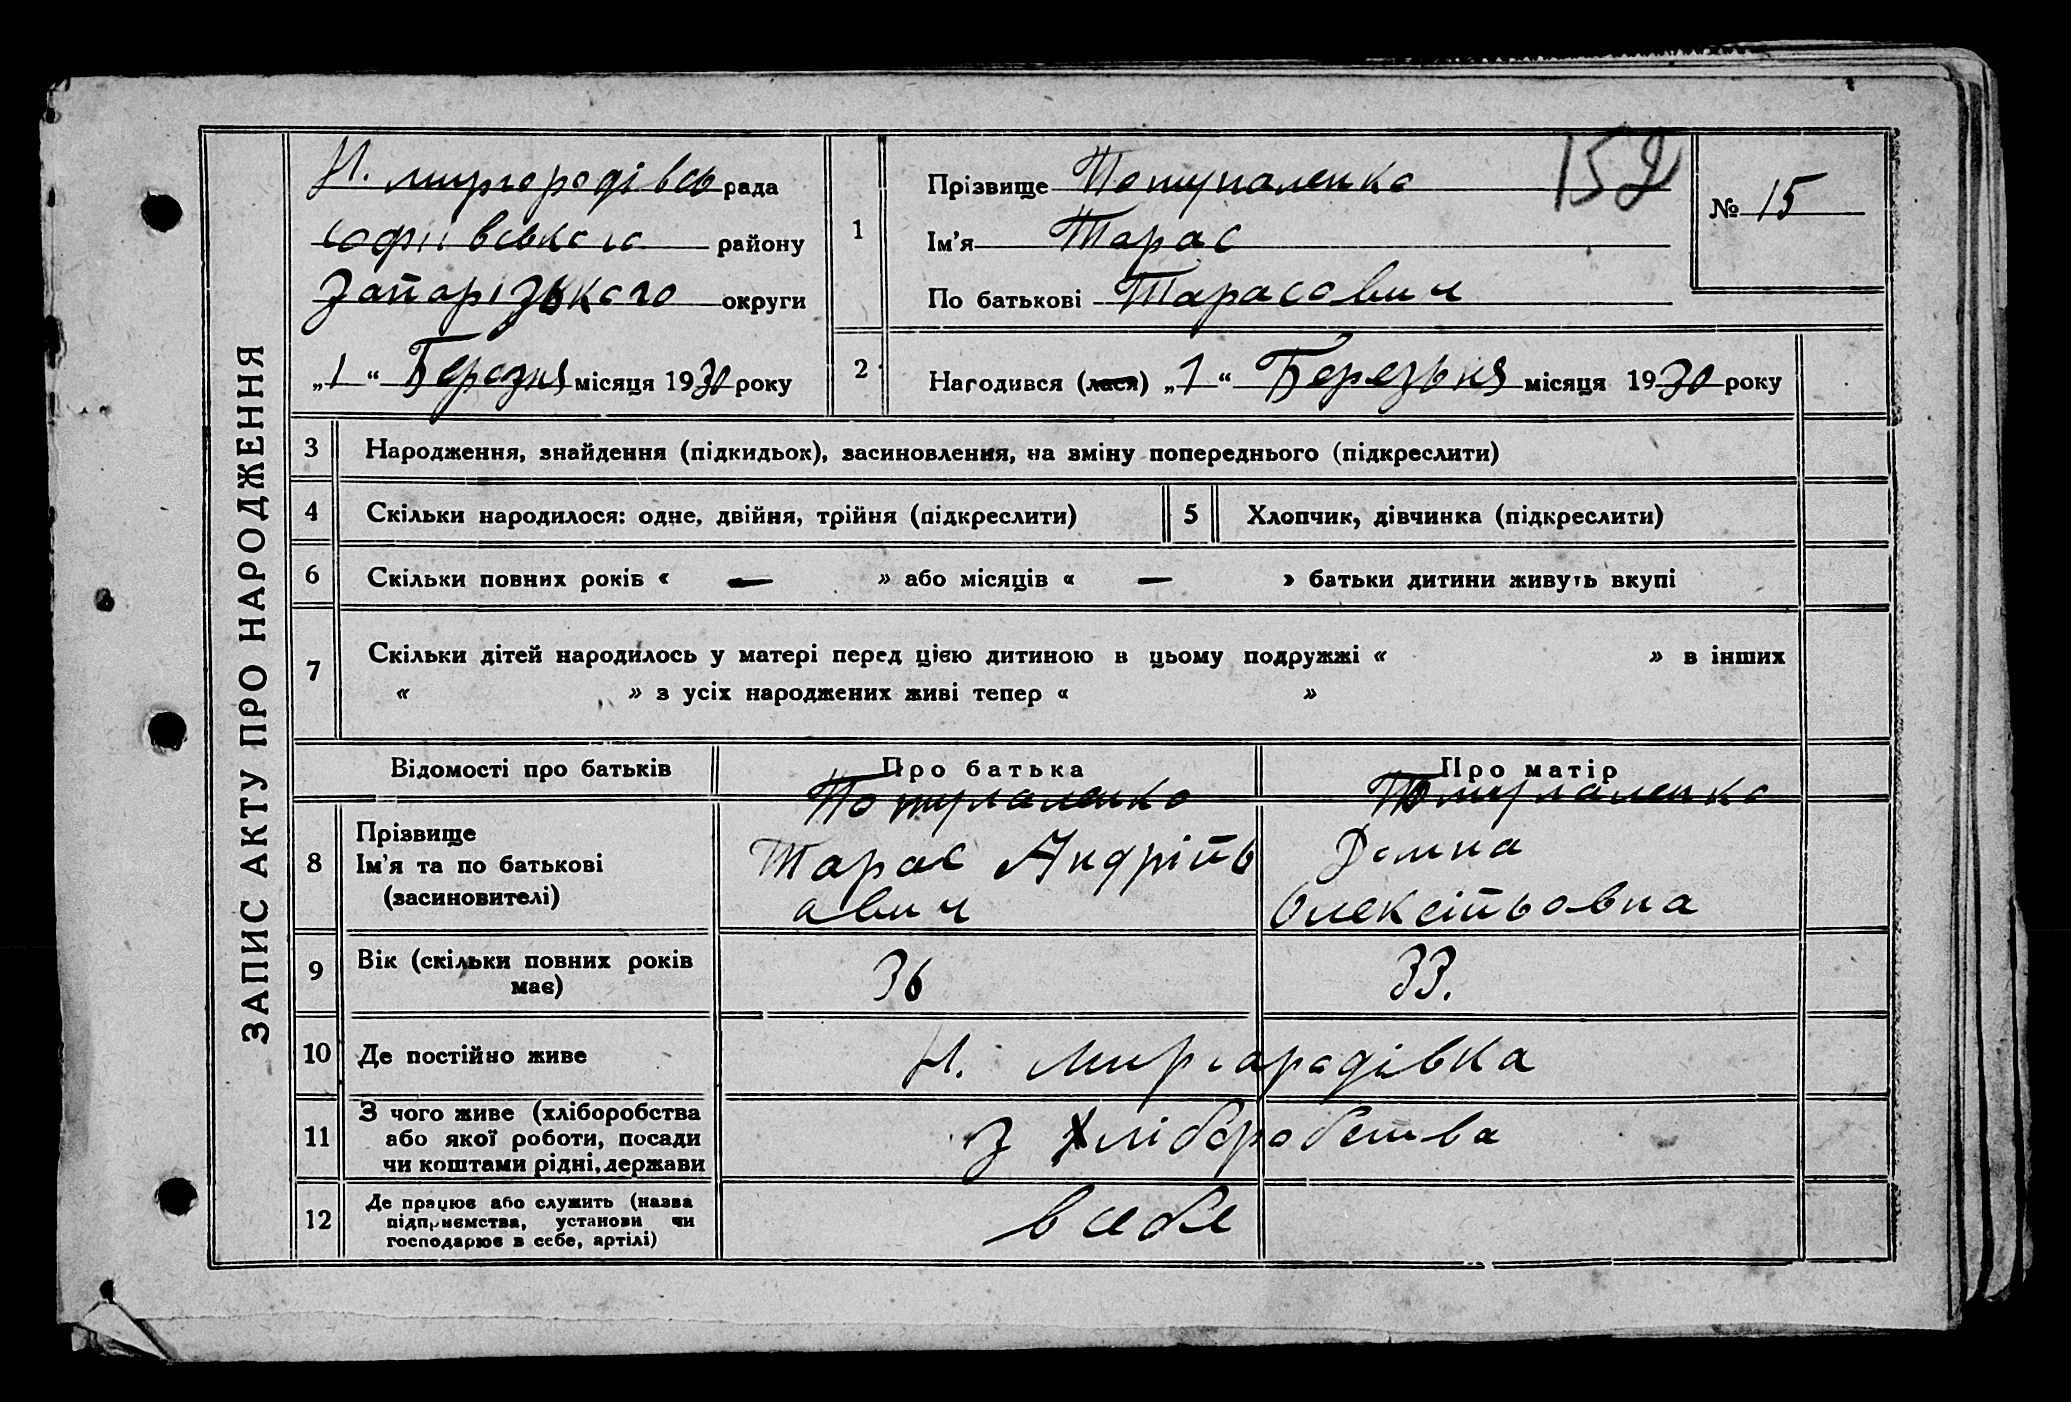 ЗАПИС АКТУ ПРО НАРОДЖЕННЯ
Н. миргородівсь рада
софіївського району
Запорізького округи
„1“ Березня місяця 1930 року
1
Прізвище Потупаленко
Ім'я Тарас
По батькові Тарасович
152
№ 15
2
Народився (лася) „1“ Березьня місяця 1930 року
3 Народження, знайдення (підкидьок), засиновлення, на зміну попереднього (підкреслити)
4 Скільки народилося: одне, двійня, трійня (підкреслити) 5 Хлопчик, дівчинка (підкреслити)
6 Скільки повних років « — » або місяців « — » батьки дитини живуть вкупі
7 Скільки дітей народилось у матері перед цією дитиною в цьому подружжі « » в інших
« » з усіх народжених живі тепер « »
Відомості про батьків Про батька Про матір
8 Прізвище
Ім'я та по батькові
(засиновителі)
Потупаленко
Тарас Андрійь
ович
Потупаленко
Домна
Олексійьовна
9 Вік (скільки повних років
має)
36 33.
10 Де постійно живе Н. Миргородівка
11 З чого живе (хліборобства
або якої роботи, посади
чи коштами рідні, держави
З Хліборобства
12 Де працює або служить (назва
підприємства, установи чи
господарює в себе, артілі)
в себе